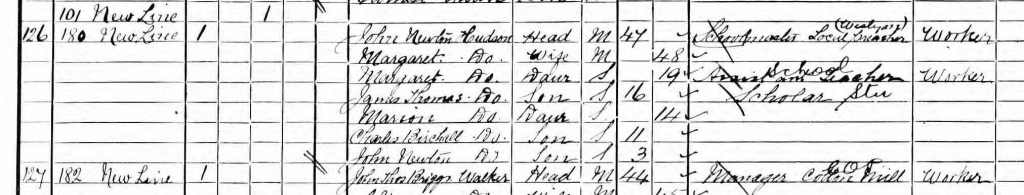 101 New Line 1
126 180 New Line 1 John Newton Hudson Head M 47 Schoolmaster Local (Wesleyan) Preacher Worker
Margaret Do. Wife M 48
Margaret Do. Daur S 19 School Teacher Worker
James Thomas Do Son S 16 Scholar
Marion Do Daur S 14
Charles Birchall Do. Son S 11
John Newton Do Son S 3
127 182 New Line 1 John Thos Briggs Walker Head M 44 Manager Cotton Mill Worker